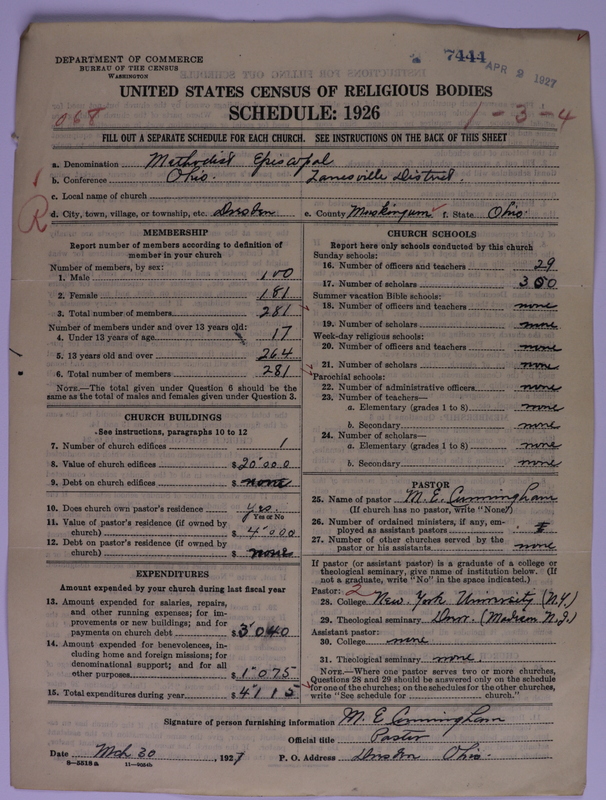 DEPARTMENT OF COMMERCE
BUREAU OF THE CENSUS
WASHINGTON
7444
APR 9 1927
UNITED STATES CENSUS OF RELIGIOUS BODIES
SCHEDULE: 1926
068
1-3-4
FILL OUT A SEPARATE SCHEDULE FOR EACH CHURCH. SEE INSTRUCTIONS ON THE BACK OF THIS SHEET
a. Denomination Methodist Episcopal
b. Conference Ohio. Zanesville District.
c. Local name of church
R
d. City, town, village, or township, etc. Dresden e. County Muskingum f. State Ohio.
MEMBERSHIP
Report number of members according to definition of
member in your church
Number of members, by sex:
1. Male 100
2. Female 181
3. Total number of members 281
Number of members under and over 13 years old:
4. Under 13 years of age 17
5. 13 years old and over 264
6. Total number of members 281
NOTE.—The total given under Question 6 should be the
same as the total of males and females given under Question 3.
CHURCH BUILDINGS
See instructions, paragraphs 10 to 12
7. Number of church edifices 1
8. Value of church edifices $20000
9. Debt on church edifices $none
10. Does church own pastor's residence? yes.
Yes or No
11. Value of pastor's residence (if owned by
church) $4000
12. Debt on pastor's residence (if owned by
church) $none
EXPENDITURES
Amount expended by church during last fiscal year
13. Amount expended for salaries, repairs,
and other running expenses; for im-
provements or new buildings; and for
payments on church debt $3040
14. Amount expended for benevolences, in-
cluding home and foreign missions; for
denominational support; and for all
other purposes $1075
15. Total expenditures during year $4115
CHURCH SCHOOLS
Report here only schools conducted by this church
Sunday schools:
16. Number of officers and teachers 29
17. Number of scholars 300
Summer vacation Bible schools:
18. Number of officers and teachers none
19. Number of scholars none
Week-day religious schools:
20. Number of officers and teachers none
21. Number of scholars none
Parochial schools:
22. Number of administrative officers none
23. Number of teachers—
a. Elementary (grades 1 to 8) none
b. Secondary none
24. Number of scholars—
a. Elementary (grades 1 to 8) none
b. Secondary none
PASTOR
25. Name of pastor M. E. Cunningham
(If church has no pastor, write "None")
26. Number of ordained ministers, if any, em-
ployed as assistant pastors
27. Number of other churches served by the
pastor or his assistants none
If pastor (or assistant pastor) is a graduate of a college or
theological seminary, give name of institution below. (If
not a graduate, write "No" in the space indicated.)
Pastor: 2
28. College New York University (N.Y.)
29. Theological seminary Drew. (Madison N.J.)
Assistant pastor:
30. College none
31. Theological seminary none.
NOTE.—Where one pastor serves two or more churches,
Questions 28 and 29 should be answered only on the schedule
for one of the churches; on the schedules for the other churches,
write "See schedule for church."
Signature of person furnishing information M. E. Cunningham
Official title Pastor
Date Mch 30, 1927 P. O. Address Dresden Ohio.
8—5518a 11—9054b